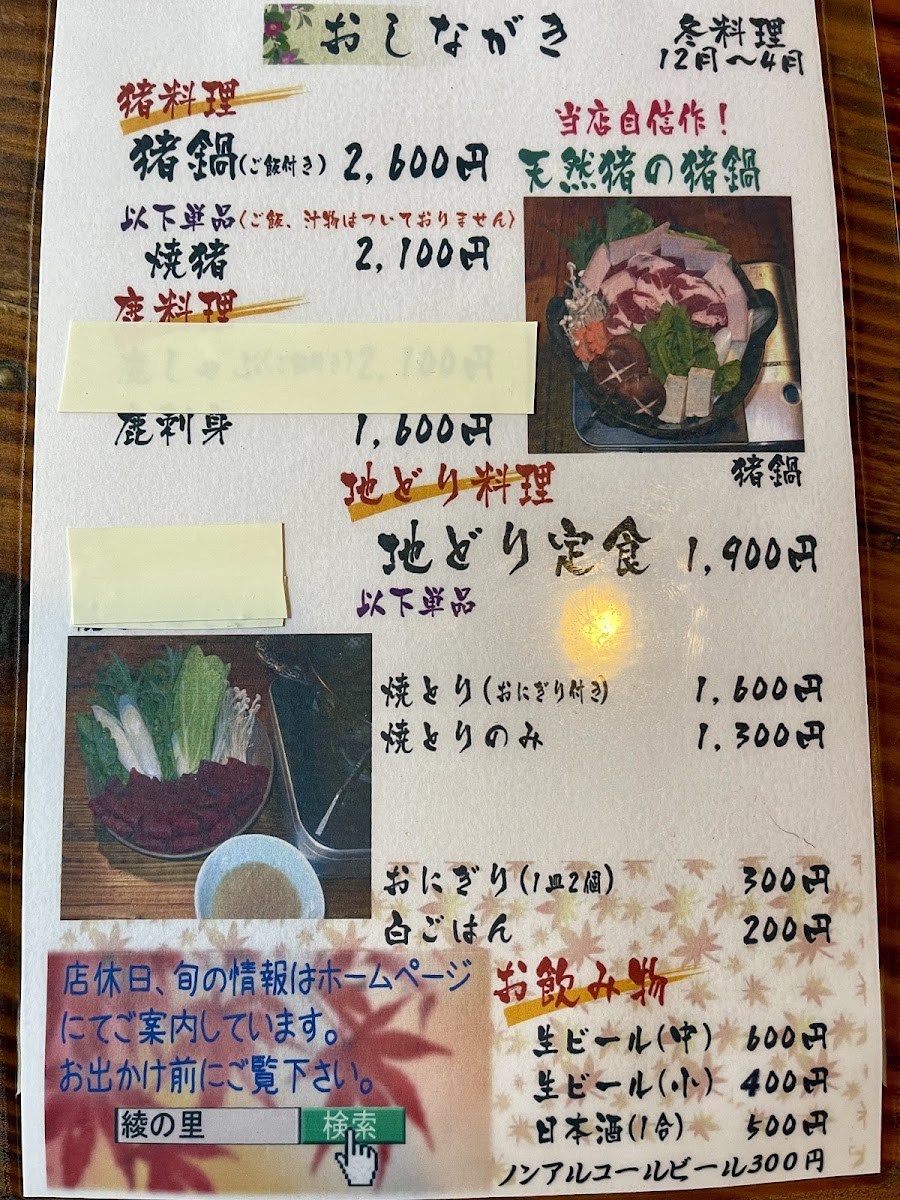 おしながき
冬料理
12月～4月
猪料理
猪鍋(ご飯付き) 2,600円
以下単品(ご飯、汁物はついておりません)
焼猪 2,100円
当店自信作！
天然猪の猪鍋
猪鍋
鹿料理
鹿刺身 1,600円
地どり料理
地どり定食 1,900円
以下単品
焼とり(おにぎり付き) 1,600円
焼とりのみ 1,300円
おにぎり(1皿2個) 300円
白ごはん 200円
お飲み物
生ビール(中) 600円
生ビール(小) 400円
日本酒(1合) 500円
ノンアルコールビール300円
店休日、旬の情報はホームページ
にてご案内しています。
お出かけ前にご覧下さい。
綾の里 検索